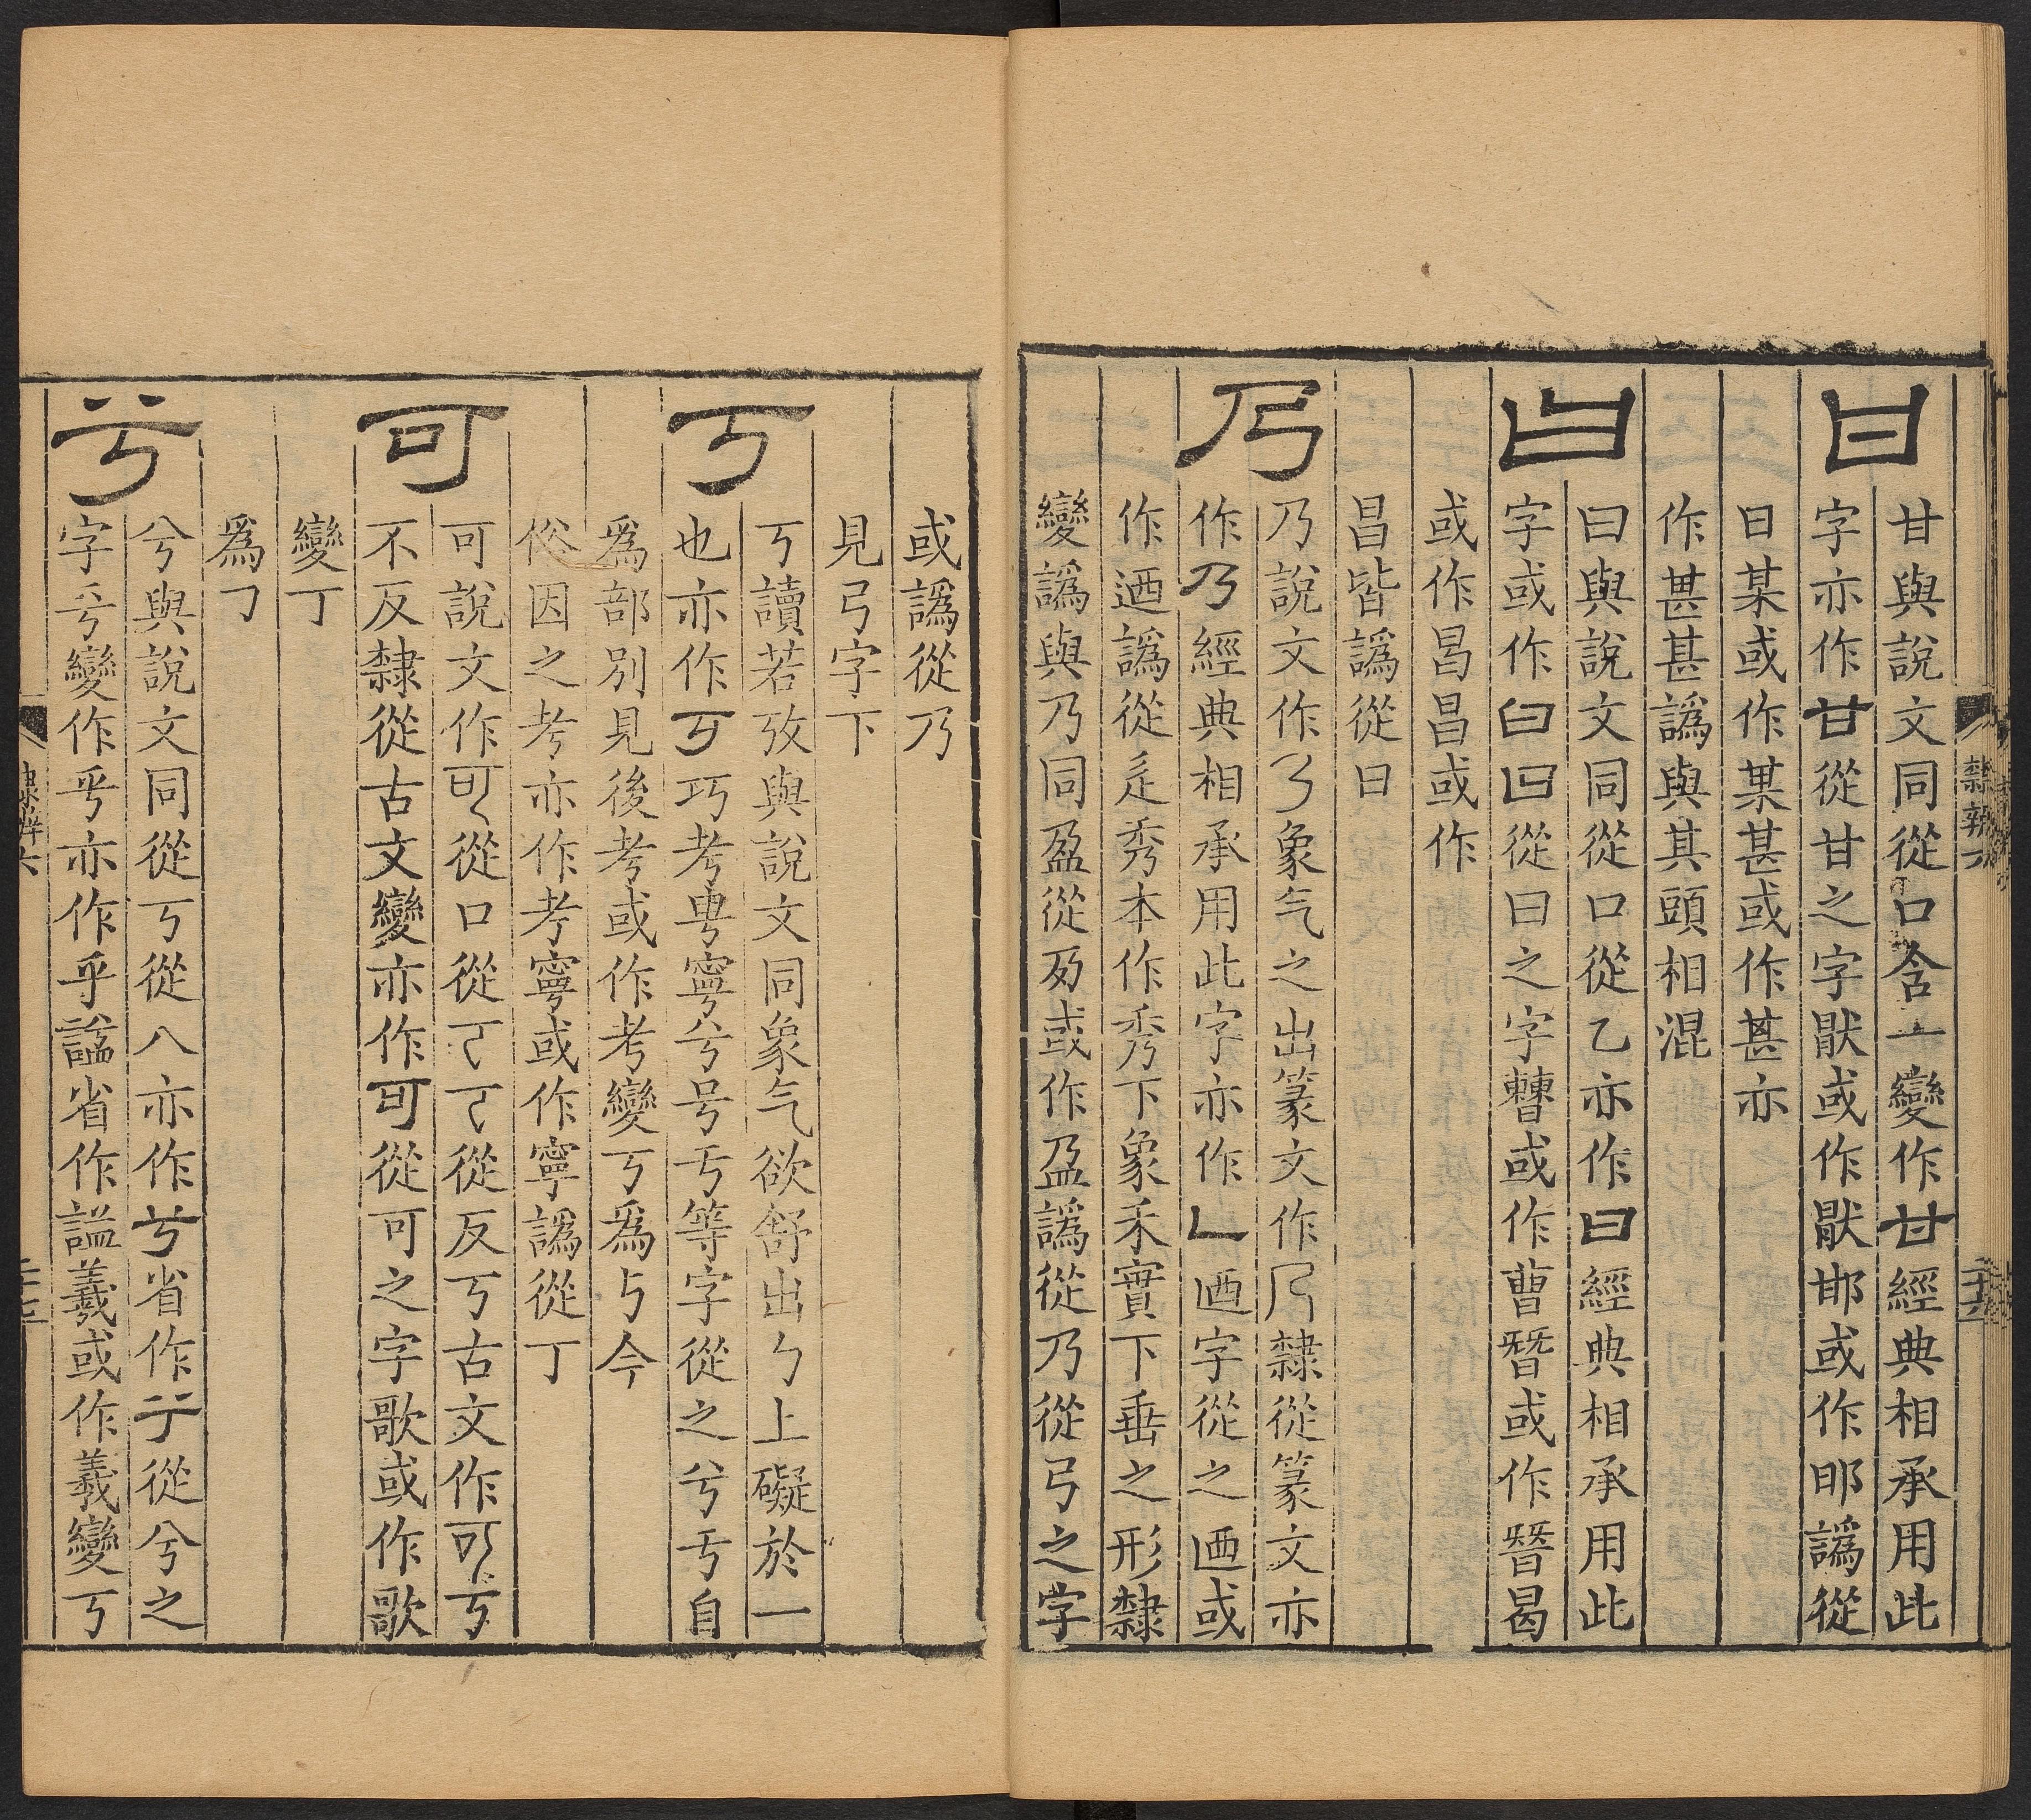 隸辨六
二十六
甘
甘與說文同從口含一變作甘經典相承用此
字亦作甘從甘之字猒或作猒邯或作䢴譌從
日某或作某甚或作甚亦
作甚甚譌與其頭相混
曰
曰與說文同從口從乙亦作曰經典相承用此
字或作曰曰從曰之字㯥或作曹朁或作晉曷
或作昌昌或作
昌皆譌從日
乃
乃說文作乃象气之出篆文作乃隸從篆文亦
作乃經典相承用此字亦作𠃊迺字從之迺或
作迺譌從辵秀本作秀下象禾實下垂之形隸
變譌與乃同盈從夃或作盈譌從乃從弓之字
或譌從乃
見弓字下
丂
丂讀若攷與說文同象气欲舒出ㄣ上礙於一
也亦作丂巧考甹寧兮号亏等字從之兮亏自
爲部別見後考或作考變丂爲与今
俗因之考亦作考寧或作寧譌從丁
可
可說文作可從口從𠀀𠀀從反丂古文作可丂
不反隸從古文變亦作可從可之字歌或作歌
變丁
爲㇆
兮
兮與說文同從丂從八亦作兮省作亍從兮之
字乎變作乎亦作乎謚省作謚羲或作羲變丂
隸辨六
二十七